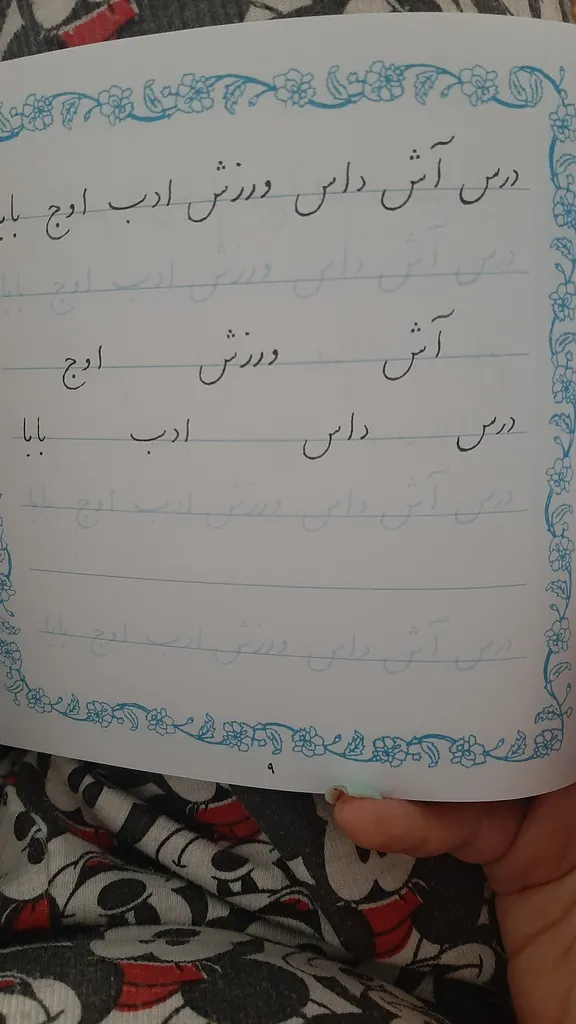 درس آش داس ورزش ادب اوج بابا
درس آش داس ورزش ادب اوج بابا
آش ورزش اوج
درس داس ادب بابا
درس آش داس ورزش ادب اوج بابا
درس آش داس ورزش ادب اوج بابا
۹